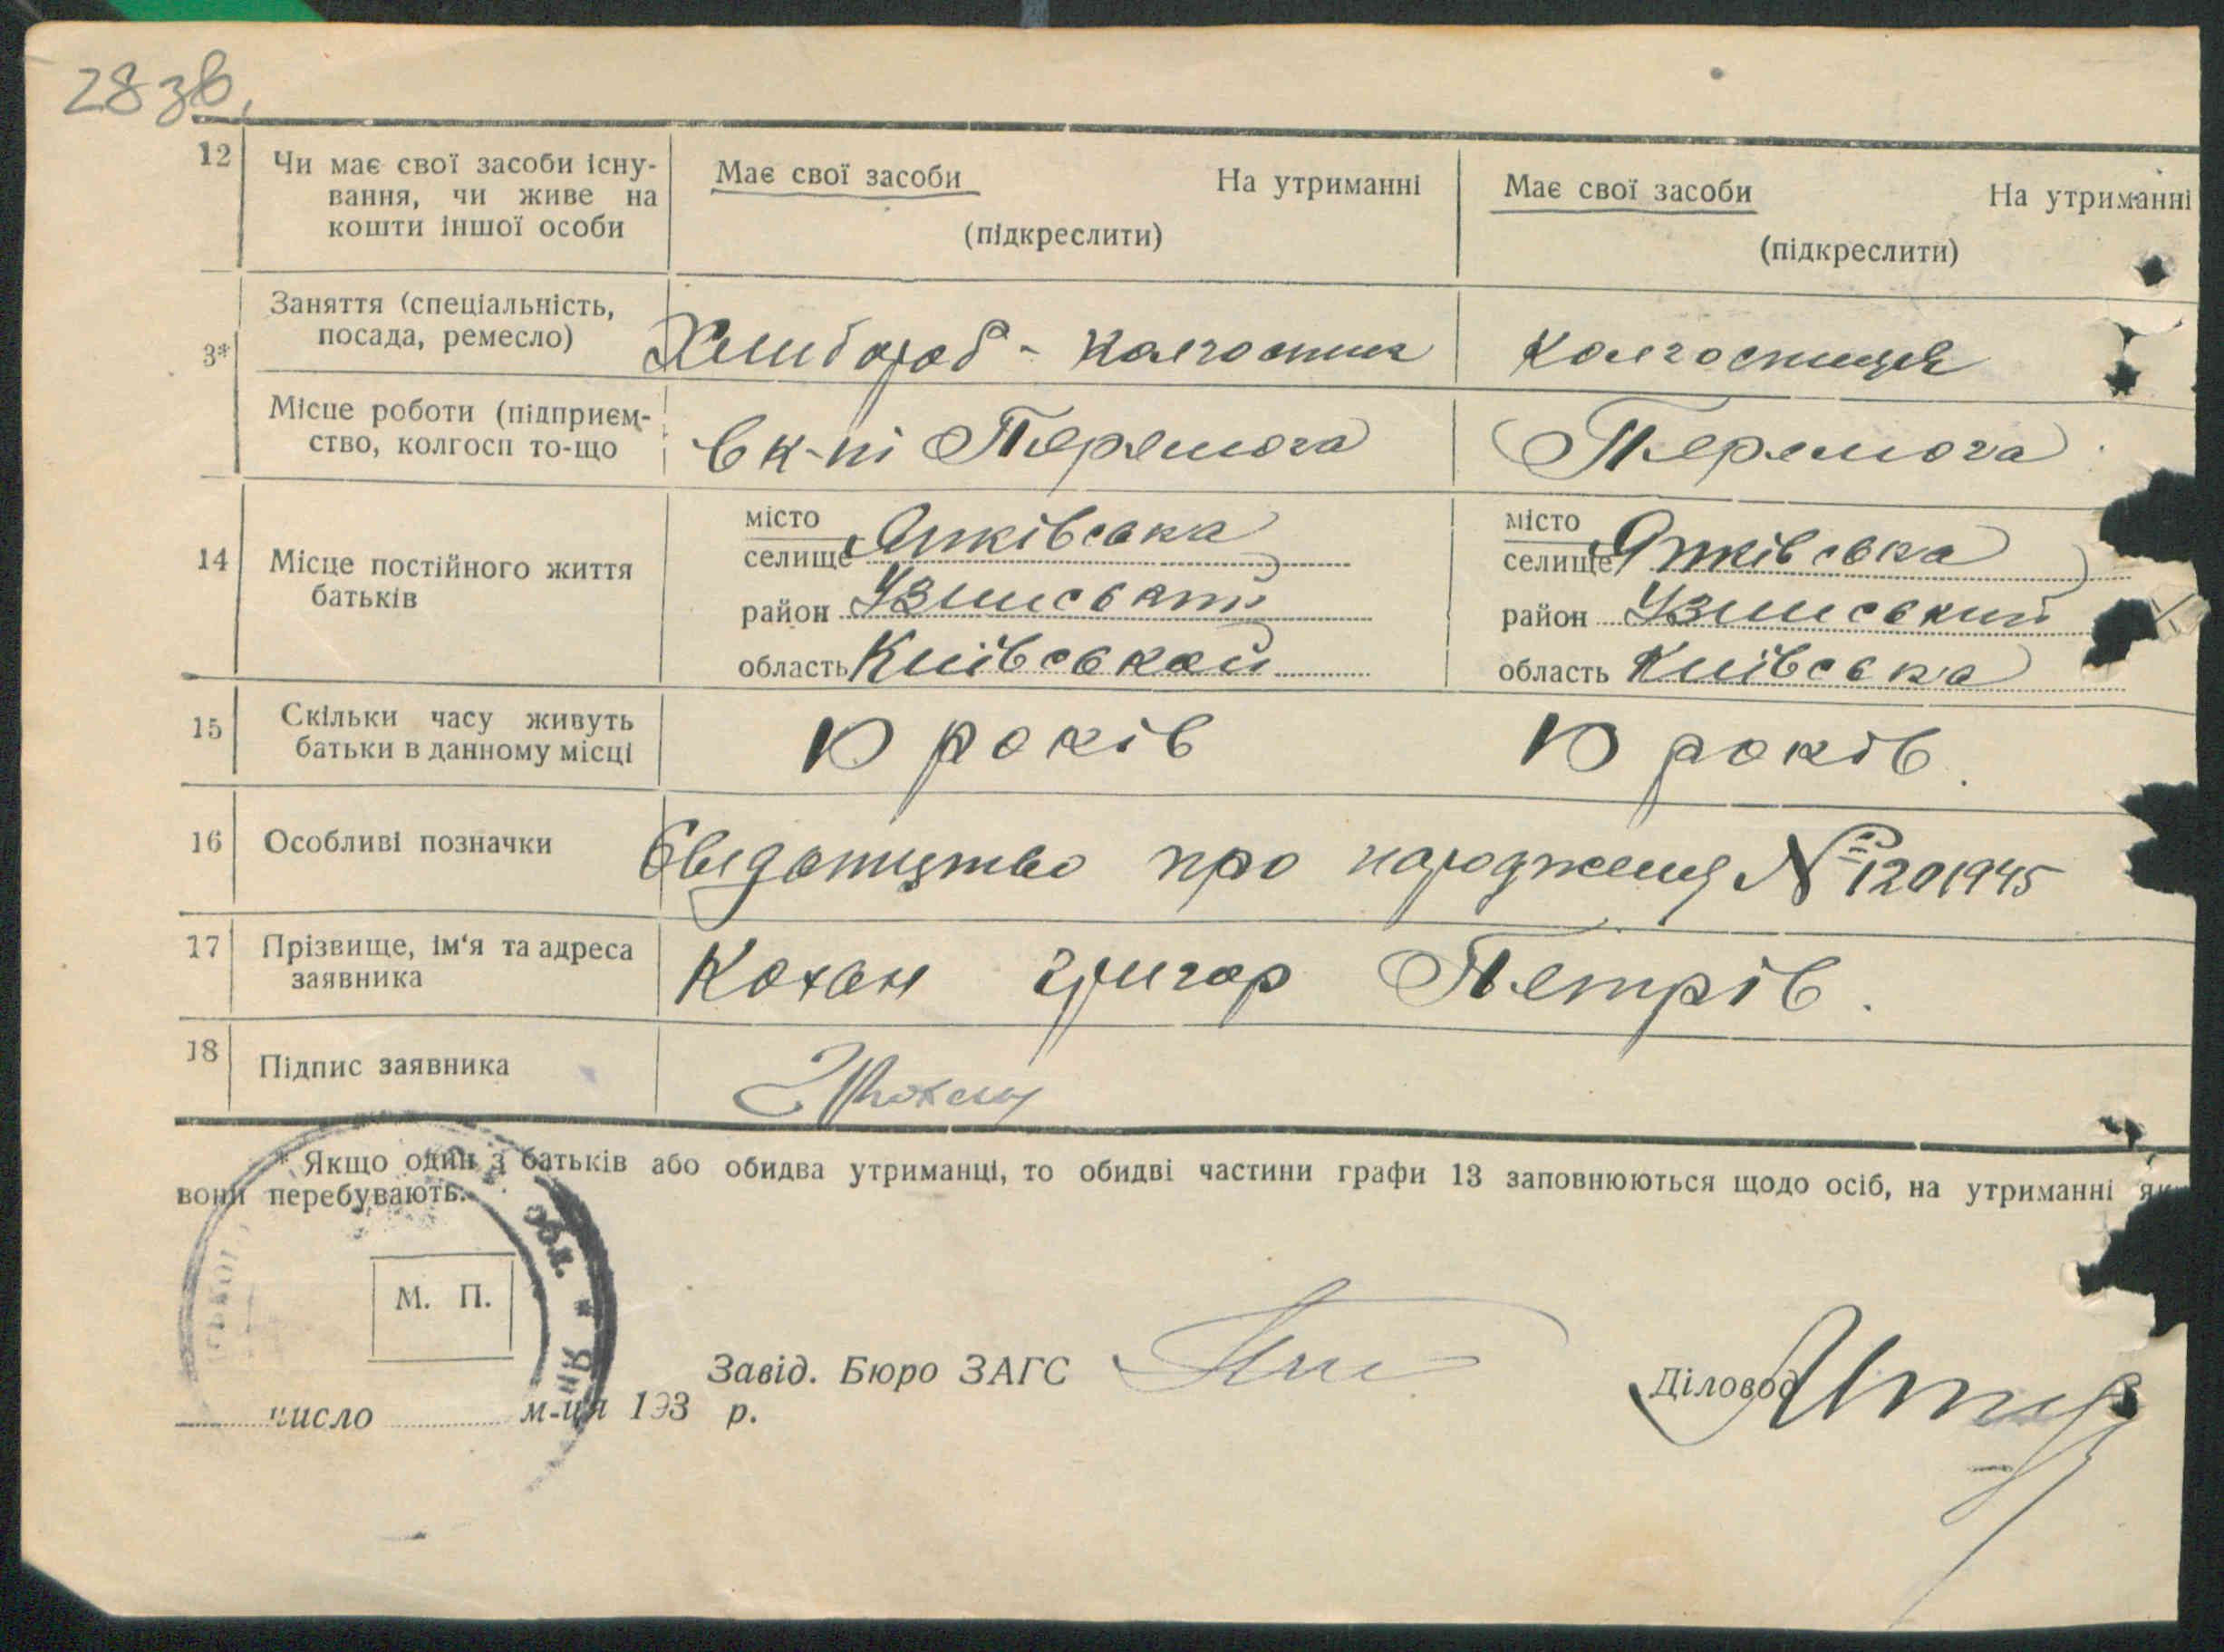 28 зв.
12 Чи має свої засоби існу-
вання, чи живе на
кошти іншої особи
Має свої засоби На утриманні
(підкреслити)
Має свої засоби На утриманні
(підкреслити)
3* Заняття (спеціальність,
посада, ремесло)
Хлибороб - колгоспник
колгоспниця
Місце роботи (підприєм-
ство, колгосп то-що
В к-пі Перемога
Перемога
14 Місце постійного життя
батьків
місто
селище Янківська
район Узинський
область Київськой
місто
селище Янківська
район Узинський
область Київська
15 Скільки часу живуть
батьки в данному місці
10 років
10 років.
16 Особливі позначки
про народження № 1201945
17 Прізвище, ім'я та адреса
заявника
Кохан Григор Петрів.
18 Підпис заявника
Кохан
* Якщо один з батьків або обидва утриманці, то обидві частини графи 13 заповнюються щодо осіб, на утриманні як
вони перебувають.
обл. *
М. П.
Завід. Бюро ЗАГС
Діловод
число м-ця 193 р.